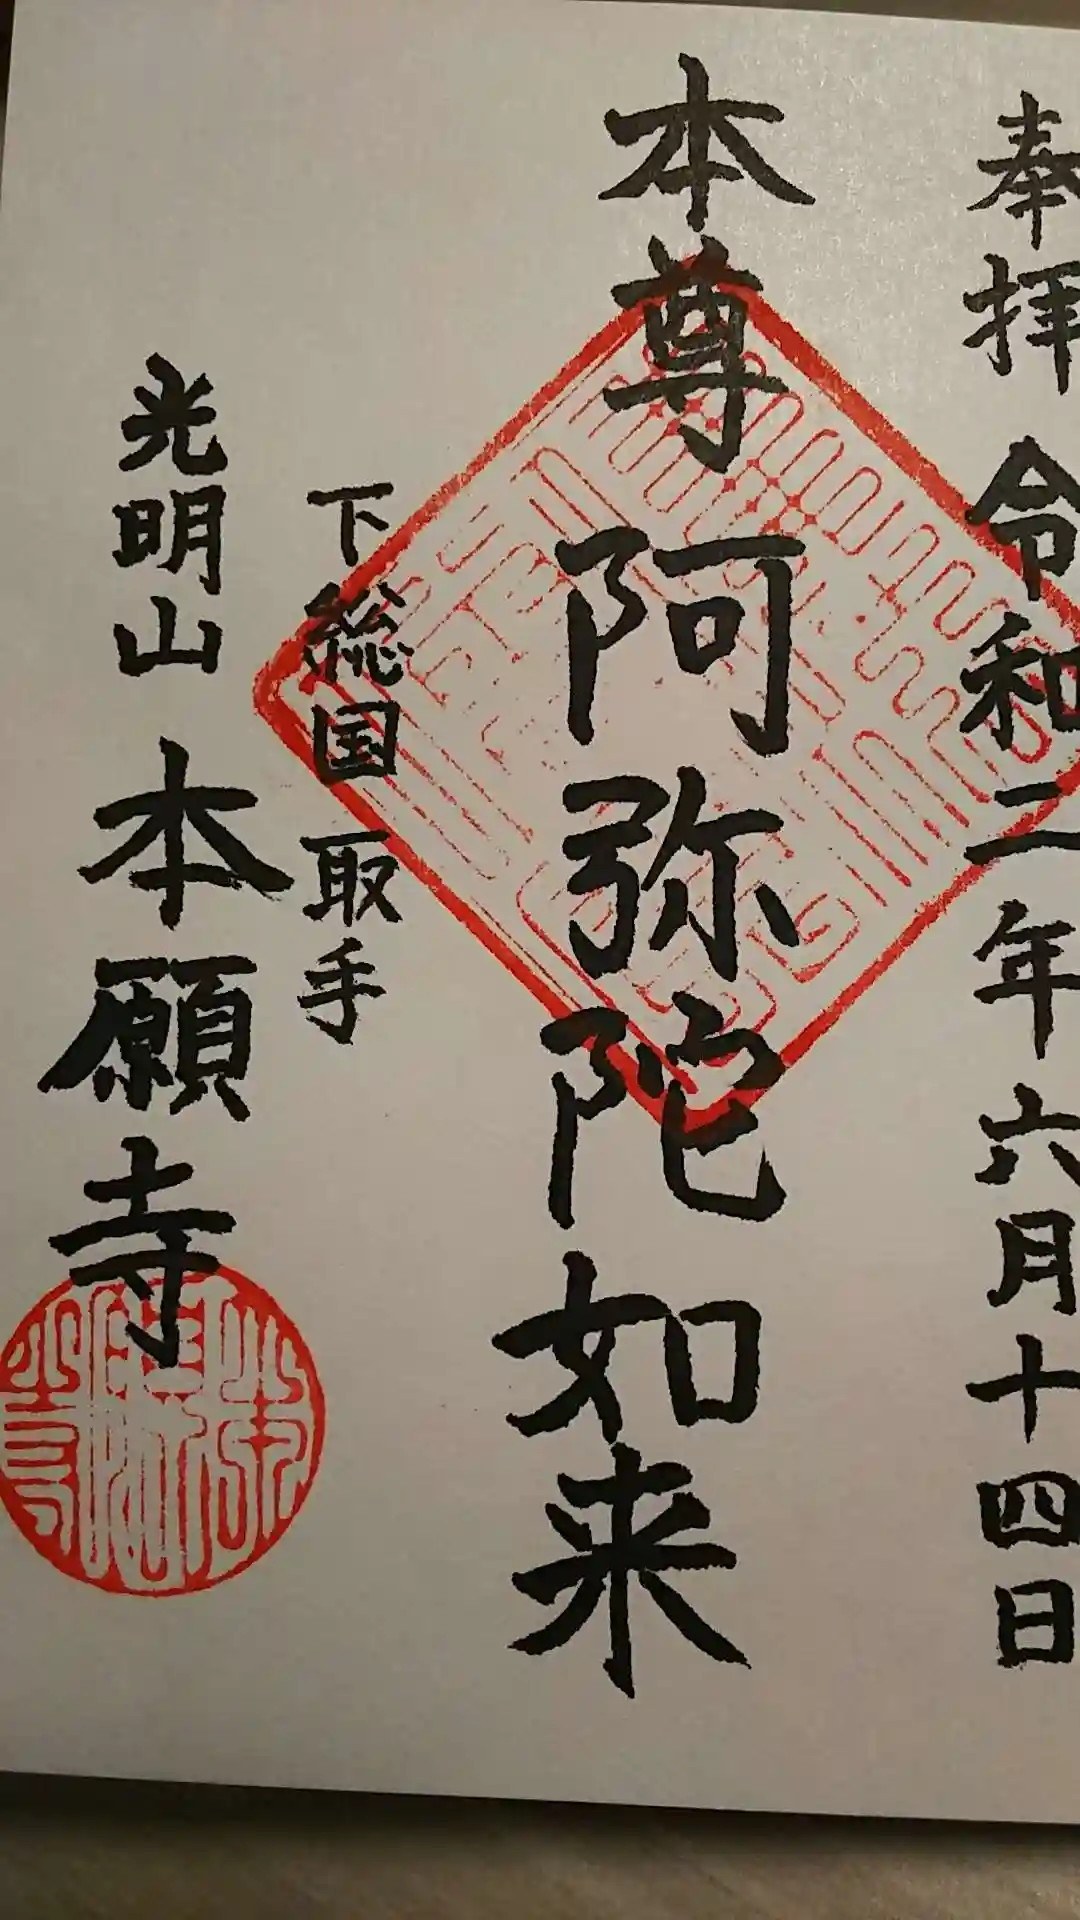 奉拝 令和二年六月十四日
本尊 阿弥陀如来
下総国 取手
光明山 本願寺